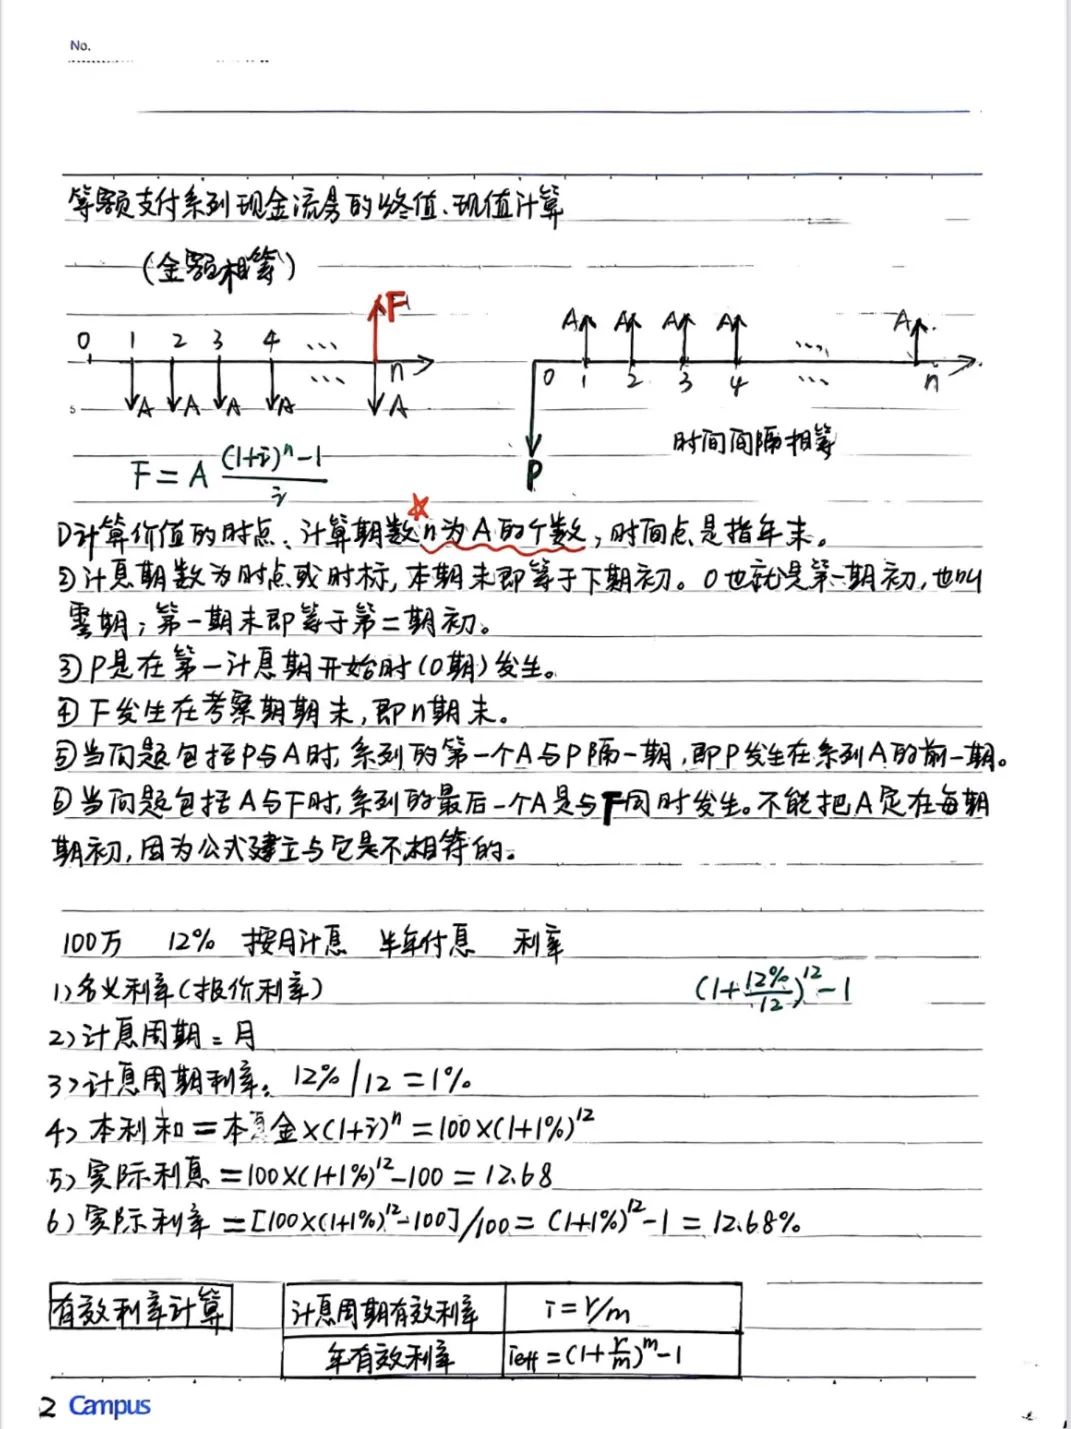 No.
等额支付系列现金流量的终值、现值计算
(金额相等)
F
0 1 2 3 4 ... n
... 
A A A A A
A A A A A
0 1 2 3 4 ... n
P
时间间隔相等
F = A ((1+i)^n - 1)/i
①计算价值的时点、计算期数n为A的个数，时间点是指年末。
②计息期数为时点或时标，本期末即等于下期初。0也就是第一期初，也叫
零期；第一期末即等于第二期初。
③P是在第一计息期开始时(0期)发生。
④F发生在考察期期末，即n期末。
⑤当问题包括P与A时，系列的第一个A与P隔一期，即P发生在系列A的前一期。
⑥当问题包括A与F时，系列的最后一个A是与F同时发生。不能把A定在每期
期初，因为公式建立与它是不相符的。
100万 12% 按月计息 半年付息 利率
1)名义利率(报价利率) (1+12%/12)^12-1
2)计息周期=月
3)计息周期利率: 12%/12=1%
4)本利和=本金×(1+i)^n=100×(1+1%)^12
5)实际利息=100×(1+1%)^12-100=12.68
6)实际利率=[100×(1+1%)^12-100]/100=(1+1%)^12-1=12.68%
有效利率计算
计息周期有效利率 i=r/m
年有效利率 ieff=(1+r/m)^m-1
2 Campus